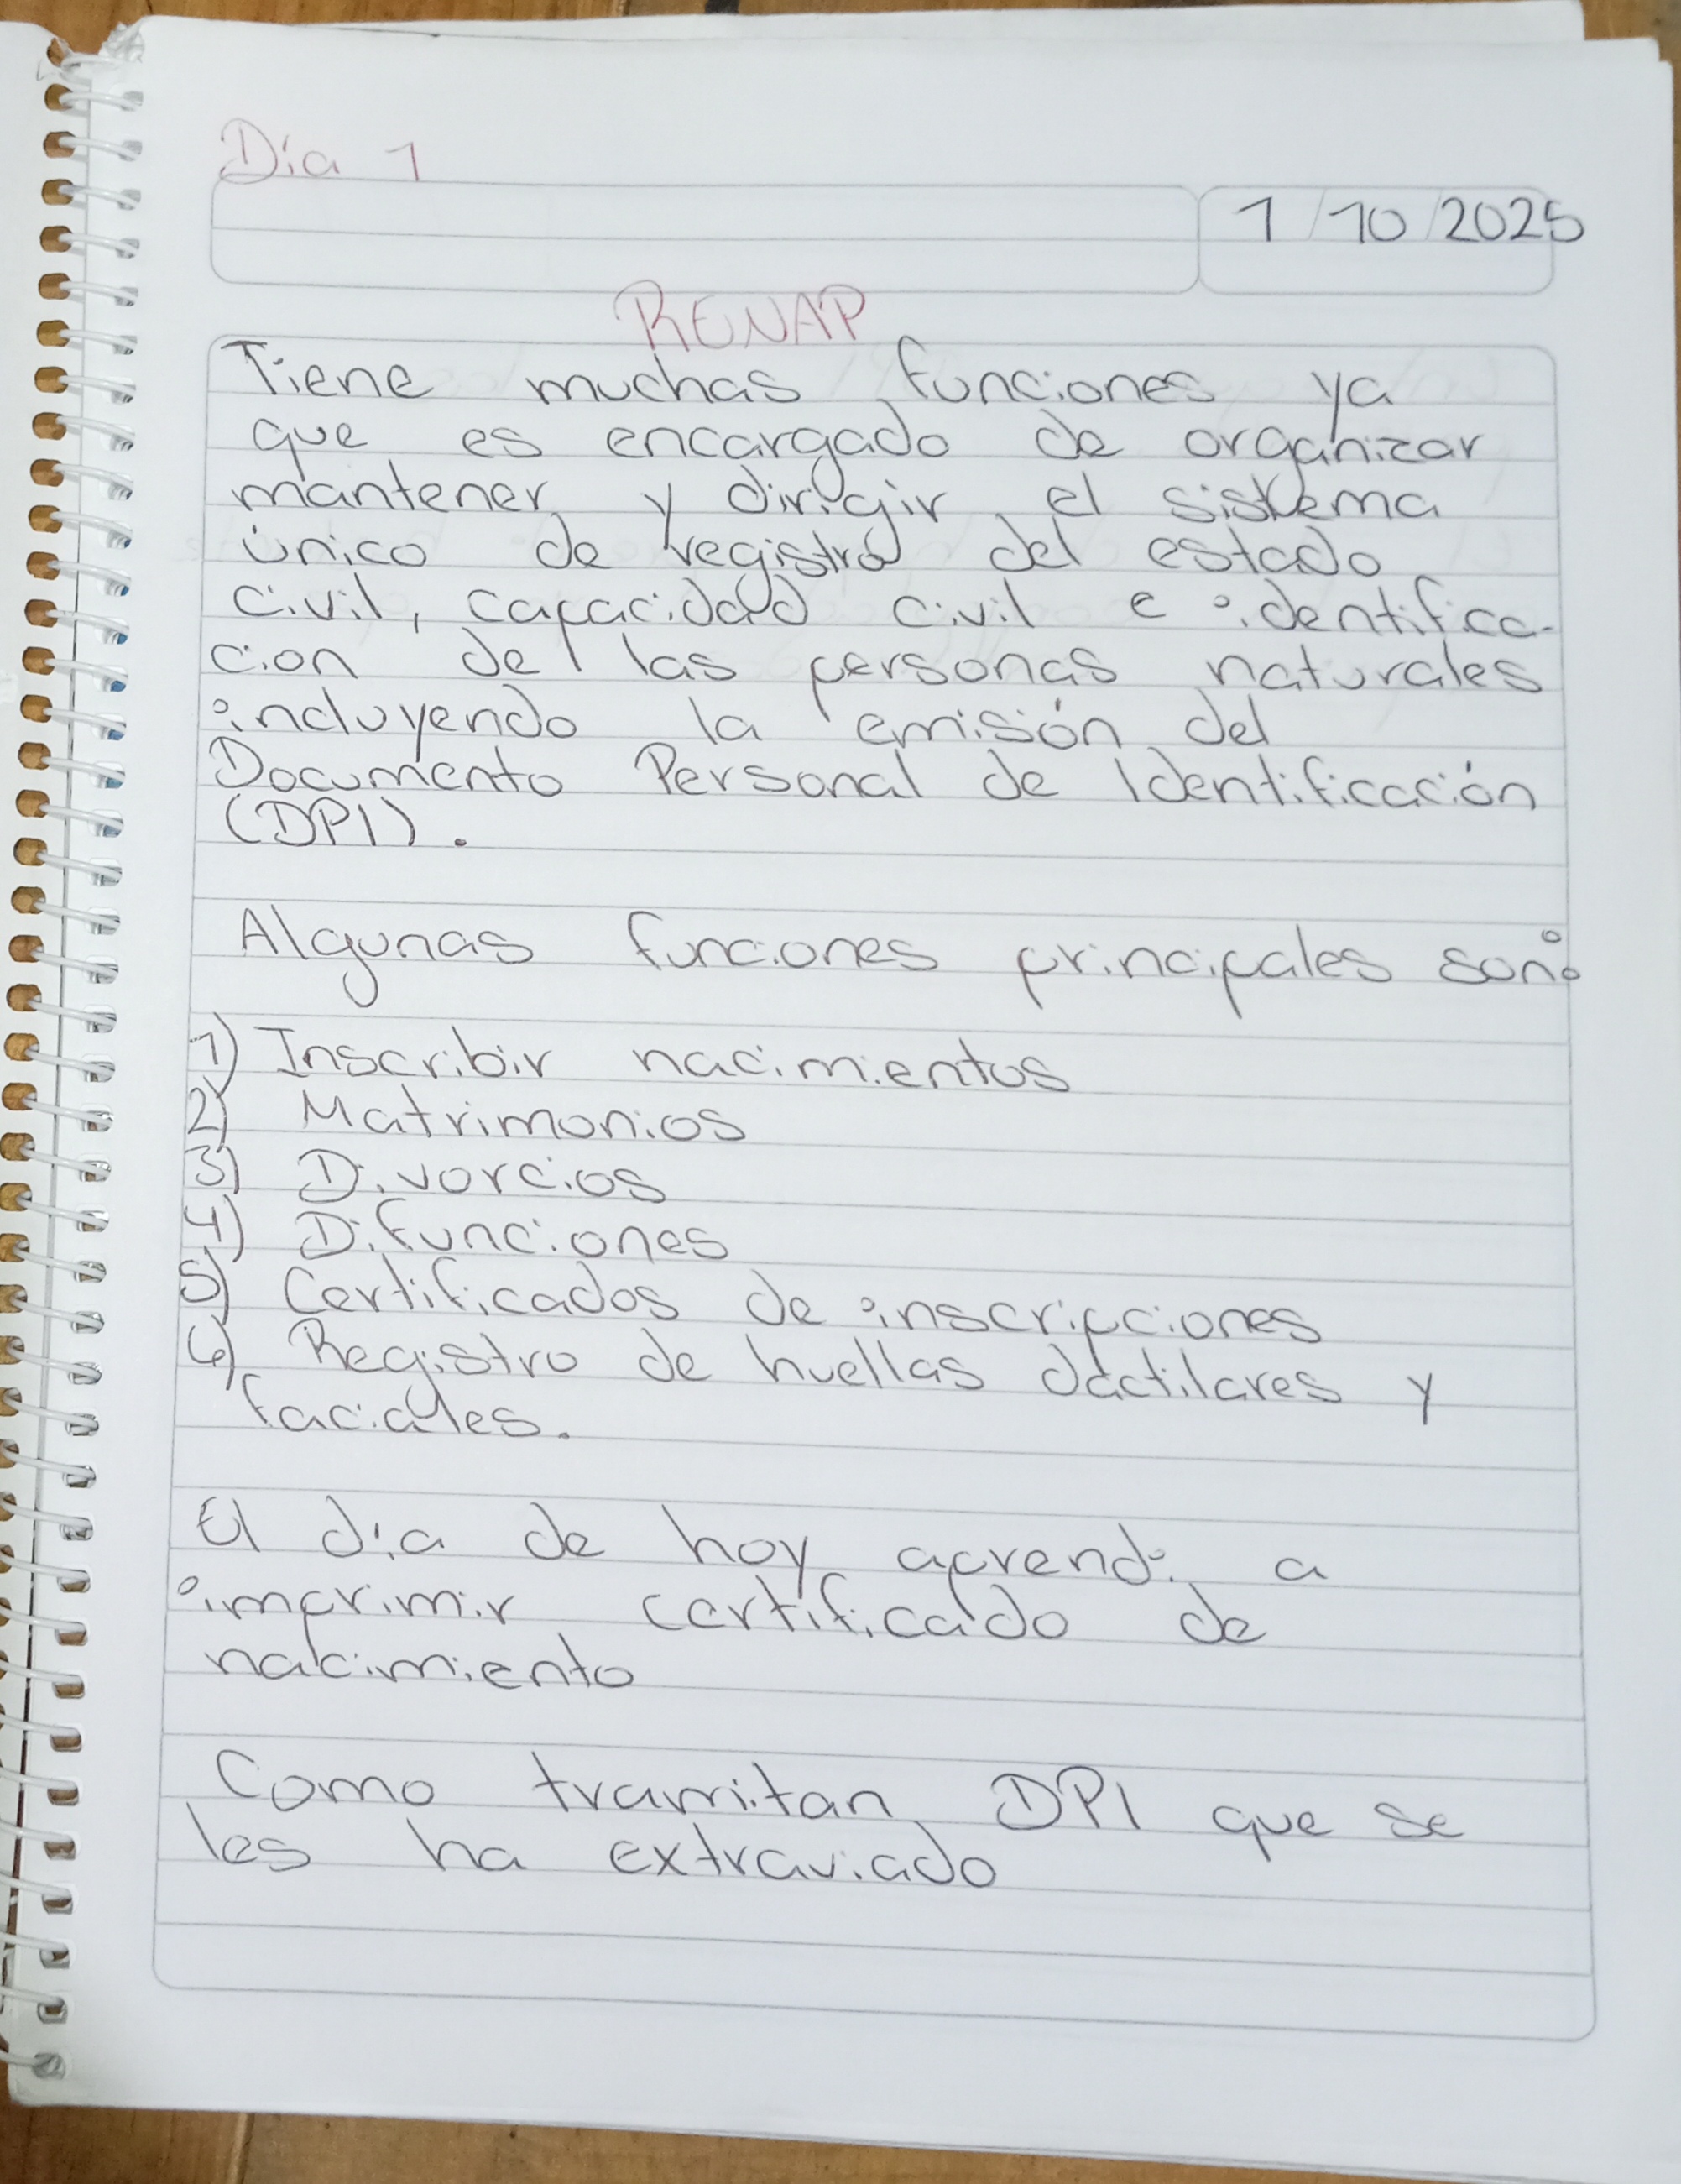 Día 1
1/10/2025
RENAP
Tiene muchas funciones ya
que es encargado de organizar
mantener y dirigir el sistema
único de registro del estado
civil, capacidad civil e identifica-
cion de las personas naturales
incluyendo la emisión del
Documento Personal de Identificación
(DPI).
Algunas funciones principales son:
1) Inscribir nacimientos
2) Matrimonios
3) Divorcios
4) Difunciones
5) Certificados de inscripciones
6) Registro de huellas dactilares y
faciales.
El día de hoy aprendi a
imprimir certificado de
nacimiento
Como tramitan DPI que se
les ha extraviado